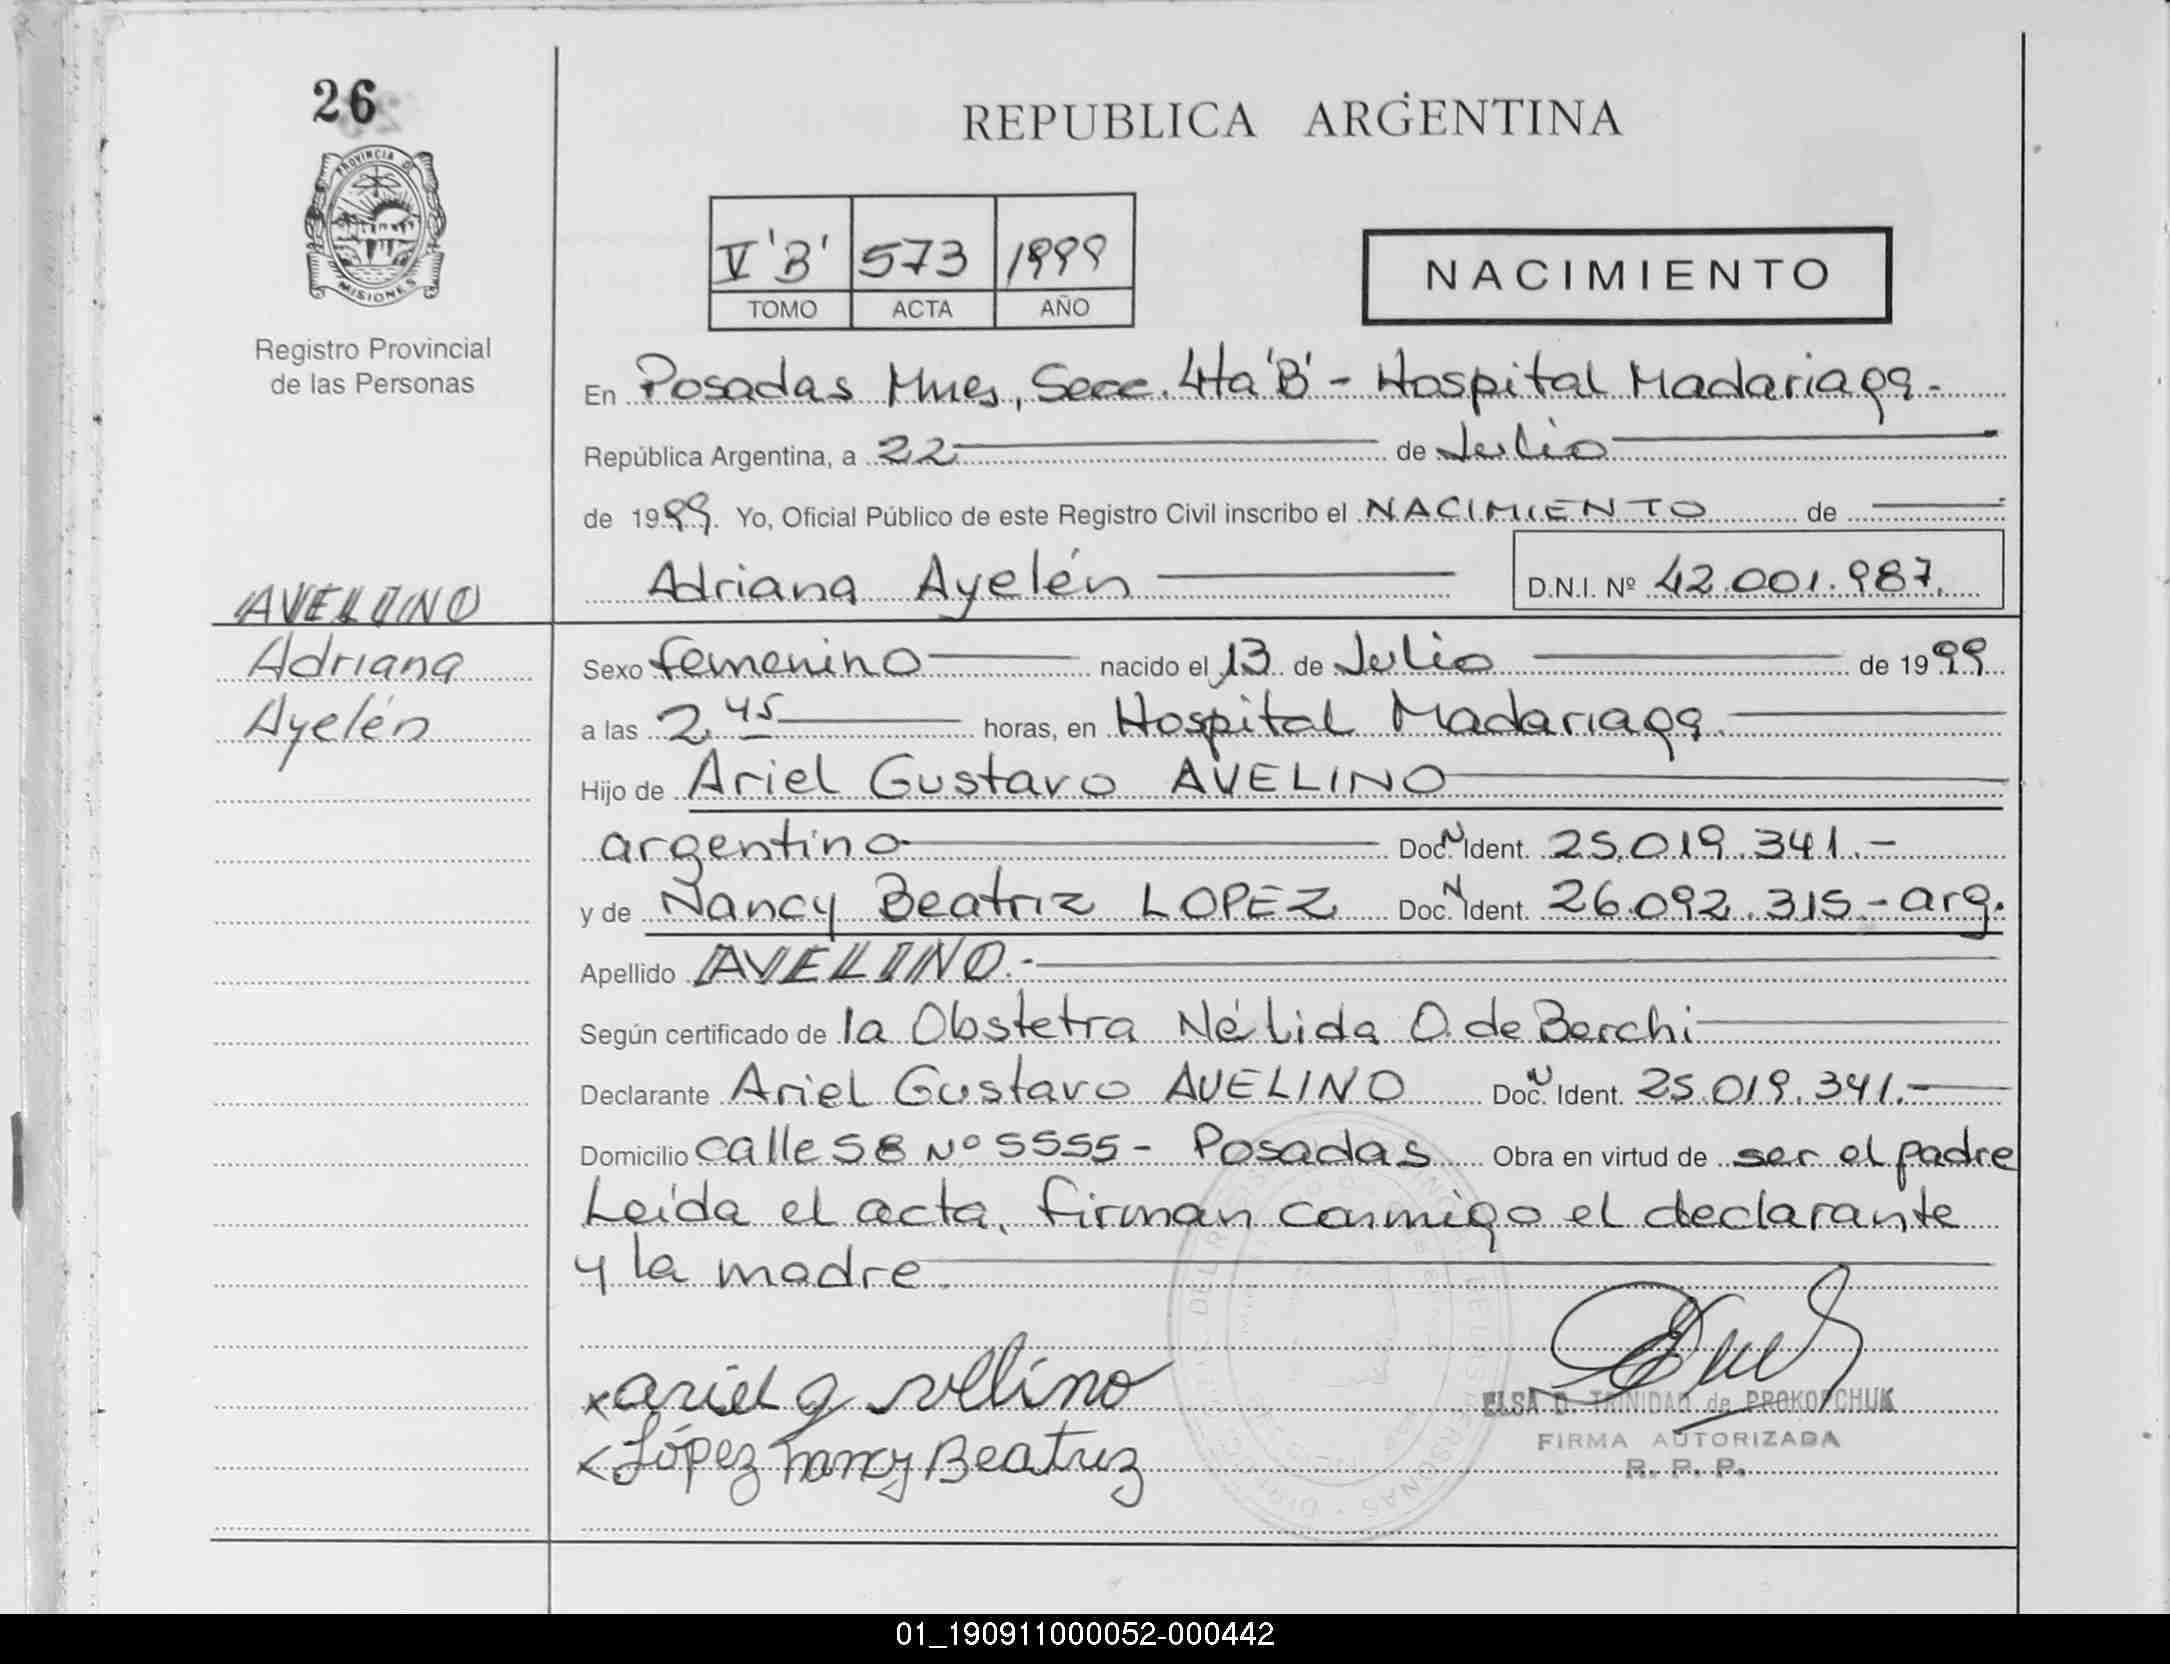 26
REPUBLICA ARGENTINA
PROVINCIA DE
MISIONES
Registro Provincial
de las Personas
V 'B' 573 1999
TOMO ACTA AÑO
NACIMIENTO
En Posadas Mnes, Secc. 4ta 'B' - Hospital Madariaga.-
República Argentina, a 22 de Julio
de 1999. Yo, Oficial Público de este Registro Civil inscribo el NACIMIENTO de
Adriana Ayelén D.N.I. Nº 42.001.987.
AVELINO
Adriana
Ayelén
Sexo femenino nacido el 13 de Julio de 1999
a las 2,45 horas, en Hospital Madariaga.
Hijo de Ariel Gustavo AVELINO
argentino Doc. N Ident. 25.019.341.-
y de Nancy Beatriz LOPEZ Doc. N Ident. 26.092.315.- arg.
Apellido AVELINO.-
Según certificado de la Obstetra Nélida O. de Berchi
Declarante Ariel Gustavo AVELINO Doc. N Ident. 25.019.341.-
Domicilio calle 58 Nº 5555 - Posadas Obra en virtud de ser el padre
Leída el acta, firman conmigo el declarante
y la madre.
x ariel g avelino
x López nancy Beatriz
ELSA D. TRINIDAD de PROKOPCHUK
FIRMA AUTORIZADA
R. P. P.
01_190911000052-000442